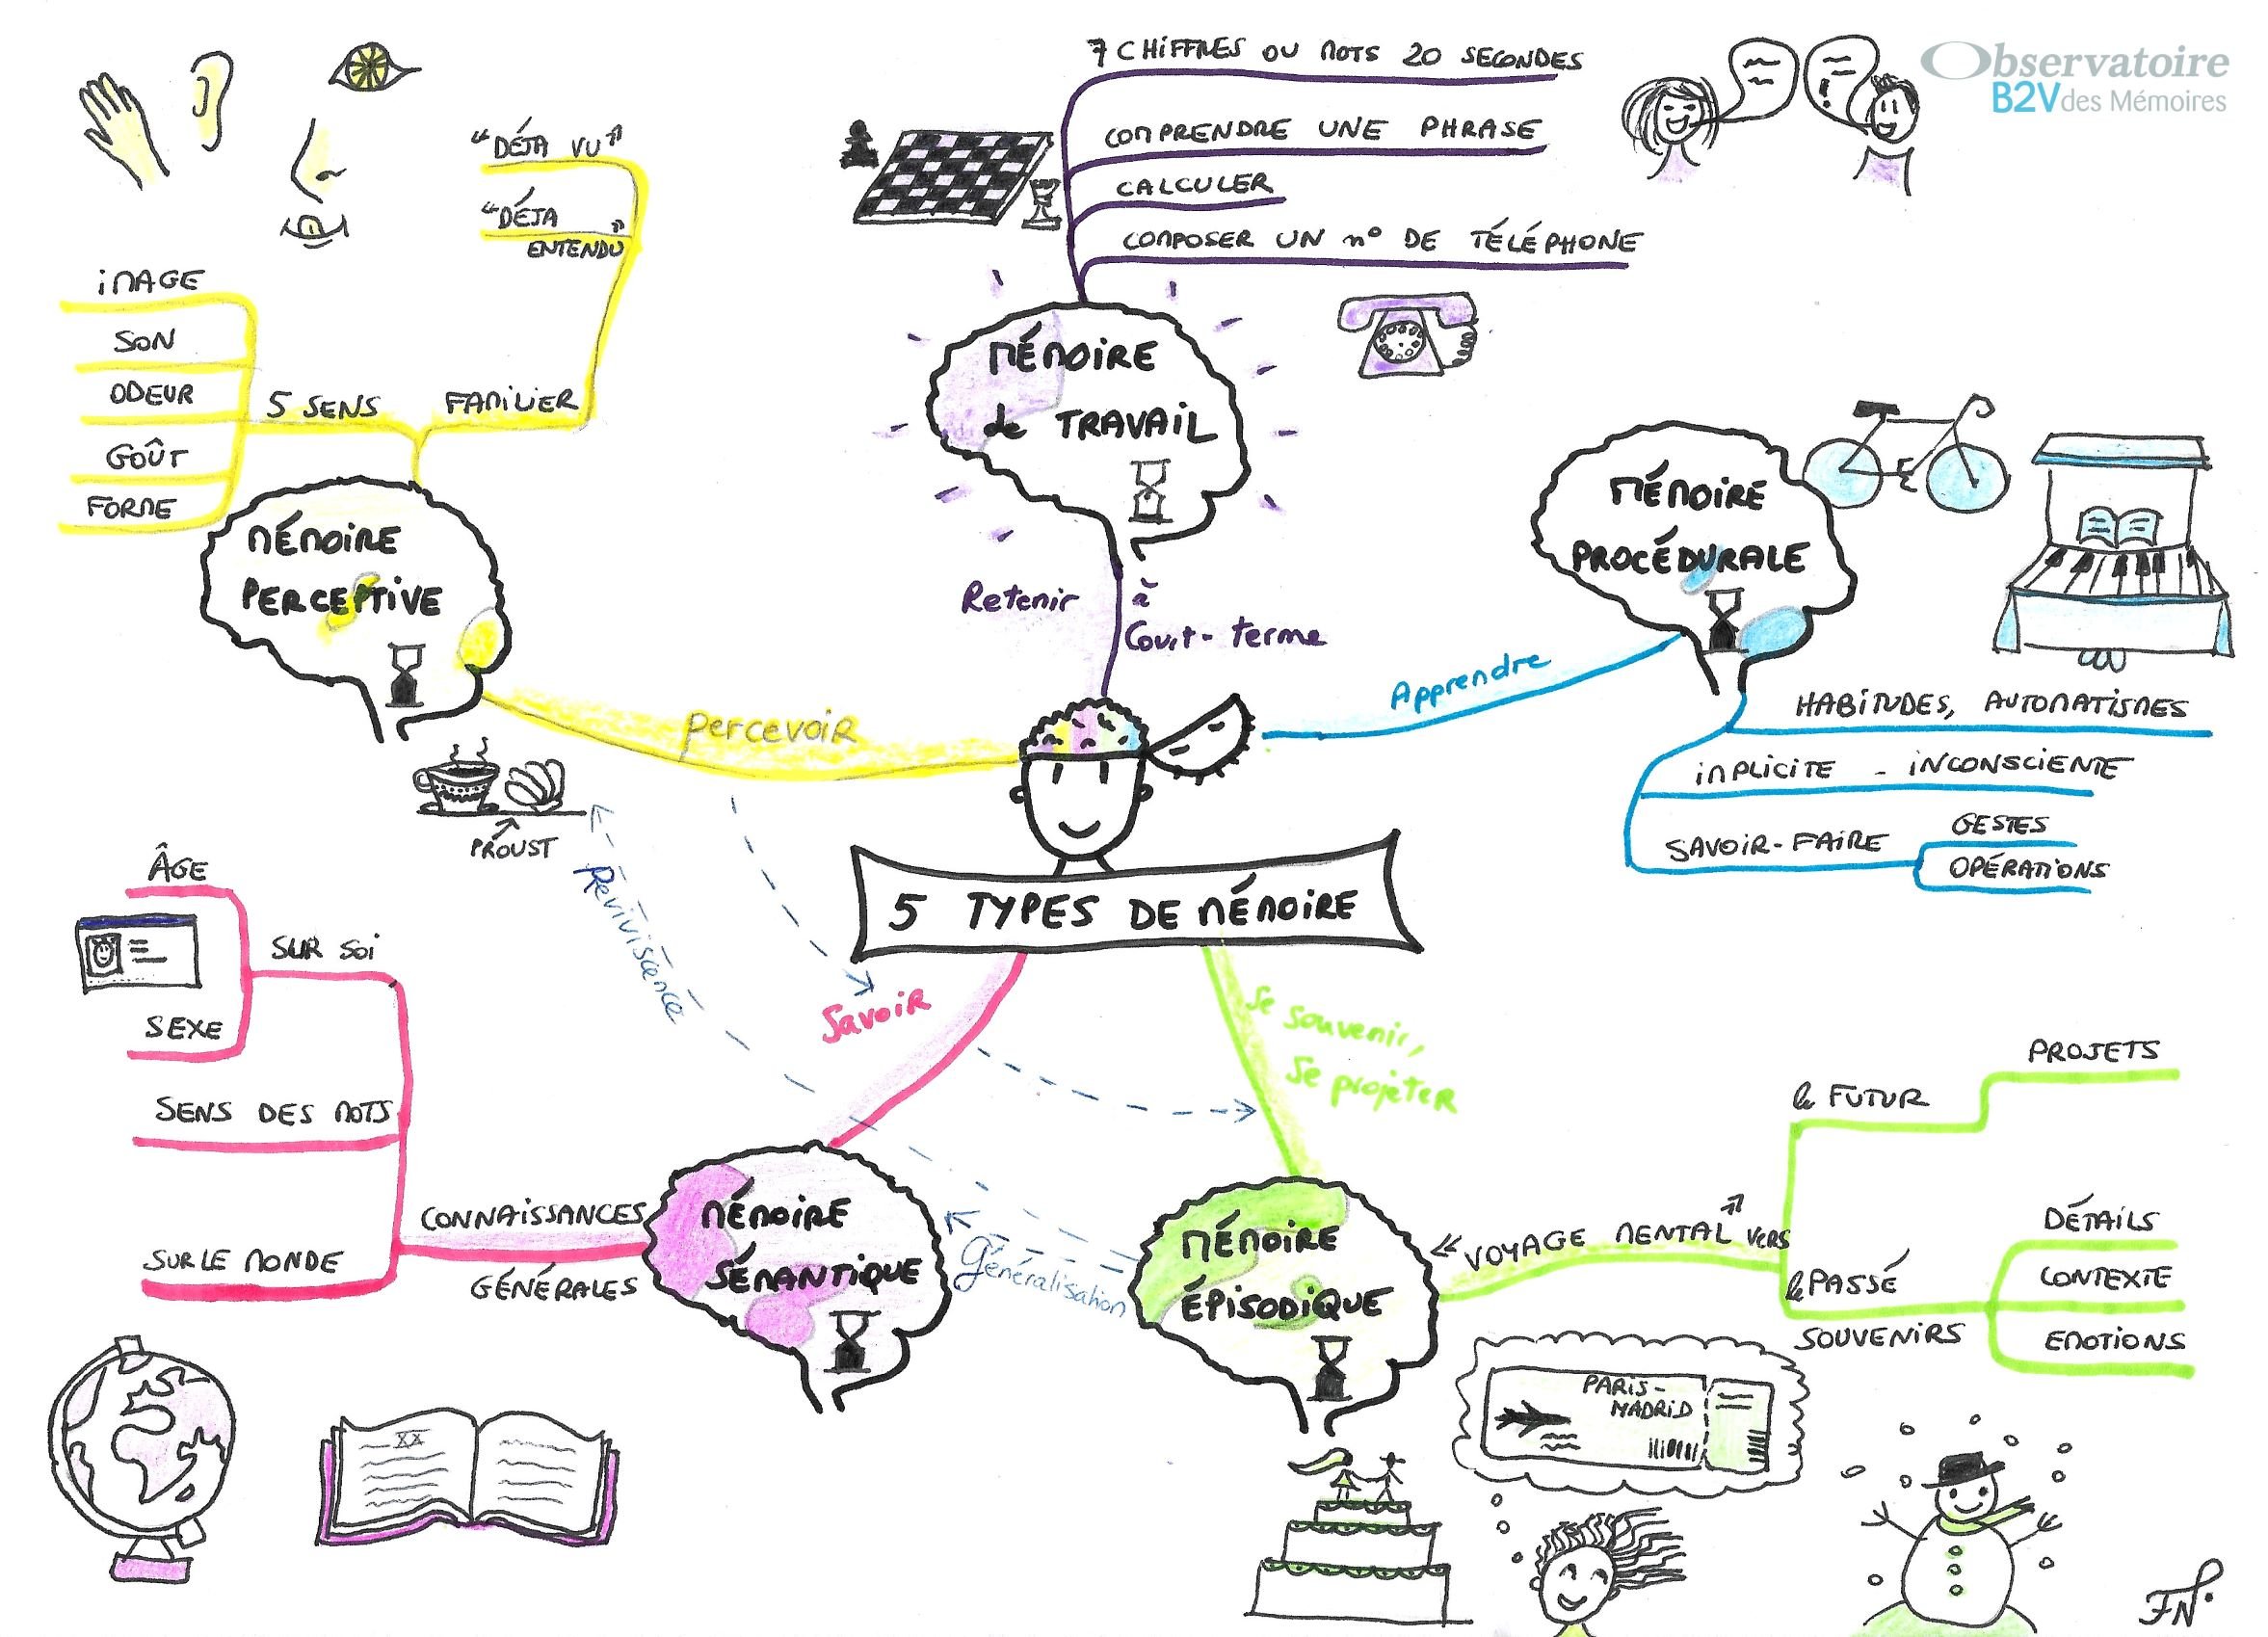 Observatoire
B2V des Mémoires
5 TYPES DE MÉMOIRE
Retenir à
Court-terme
MÉMOIRE
de TRAVAIL
7 CHIFFRES OU MOTS 20 SECONDES
COMPRENDRE UNE PHRASE
CALCULER
COMPOSER UN n° DE TÉLÉPHONE
Apprendre
MÉMOIRE
PROCÉDURALE
HABITUDES, AUTOMATISMES
IMPLICITE - INCONSCIENTE
SAVOIR-FAIRE
GESTES
OPÉRATIONS
Se souvenir,
Se projeter
MÉMOIRE
ÉPISODIQUE
"VOYAGE MENTAL" VERS
le FUTUR
PROJETS
le PASSÉ
SOUVENIRS
DÉTAILS
CONTEXTE
EMOTIONS
PARIS-
MADRID
Savoir
MÉMOIRE
SÉMANTIQUE
CONNAISSANCES
GÉNÉRALES
SUR SOI
ÂGE
SEXE
SENS DES MOTS
SUR LE MONDE
XX
Percevoir
MÉMOIRE
PERCEPTIVE
5 SENS
IMAGE
SON
ODEUR
GOÛT
FORME
FAMILIER
"DÉJA VU"
"DÉJA
ENTENDU"
PROUST
Reviviscence
Généralisation
FN.